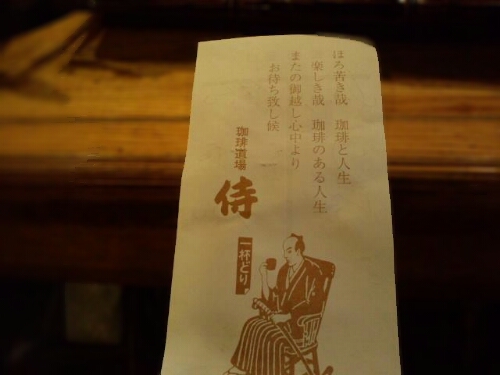 ほろ苦き哉　珈琲と人生
楽しき哉　珈琲のある人生
またの御越し心中より
お待ち致し候
珈琲道場
侍
一杯どり。